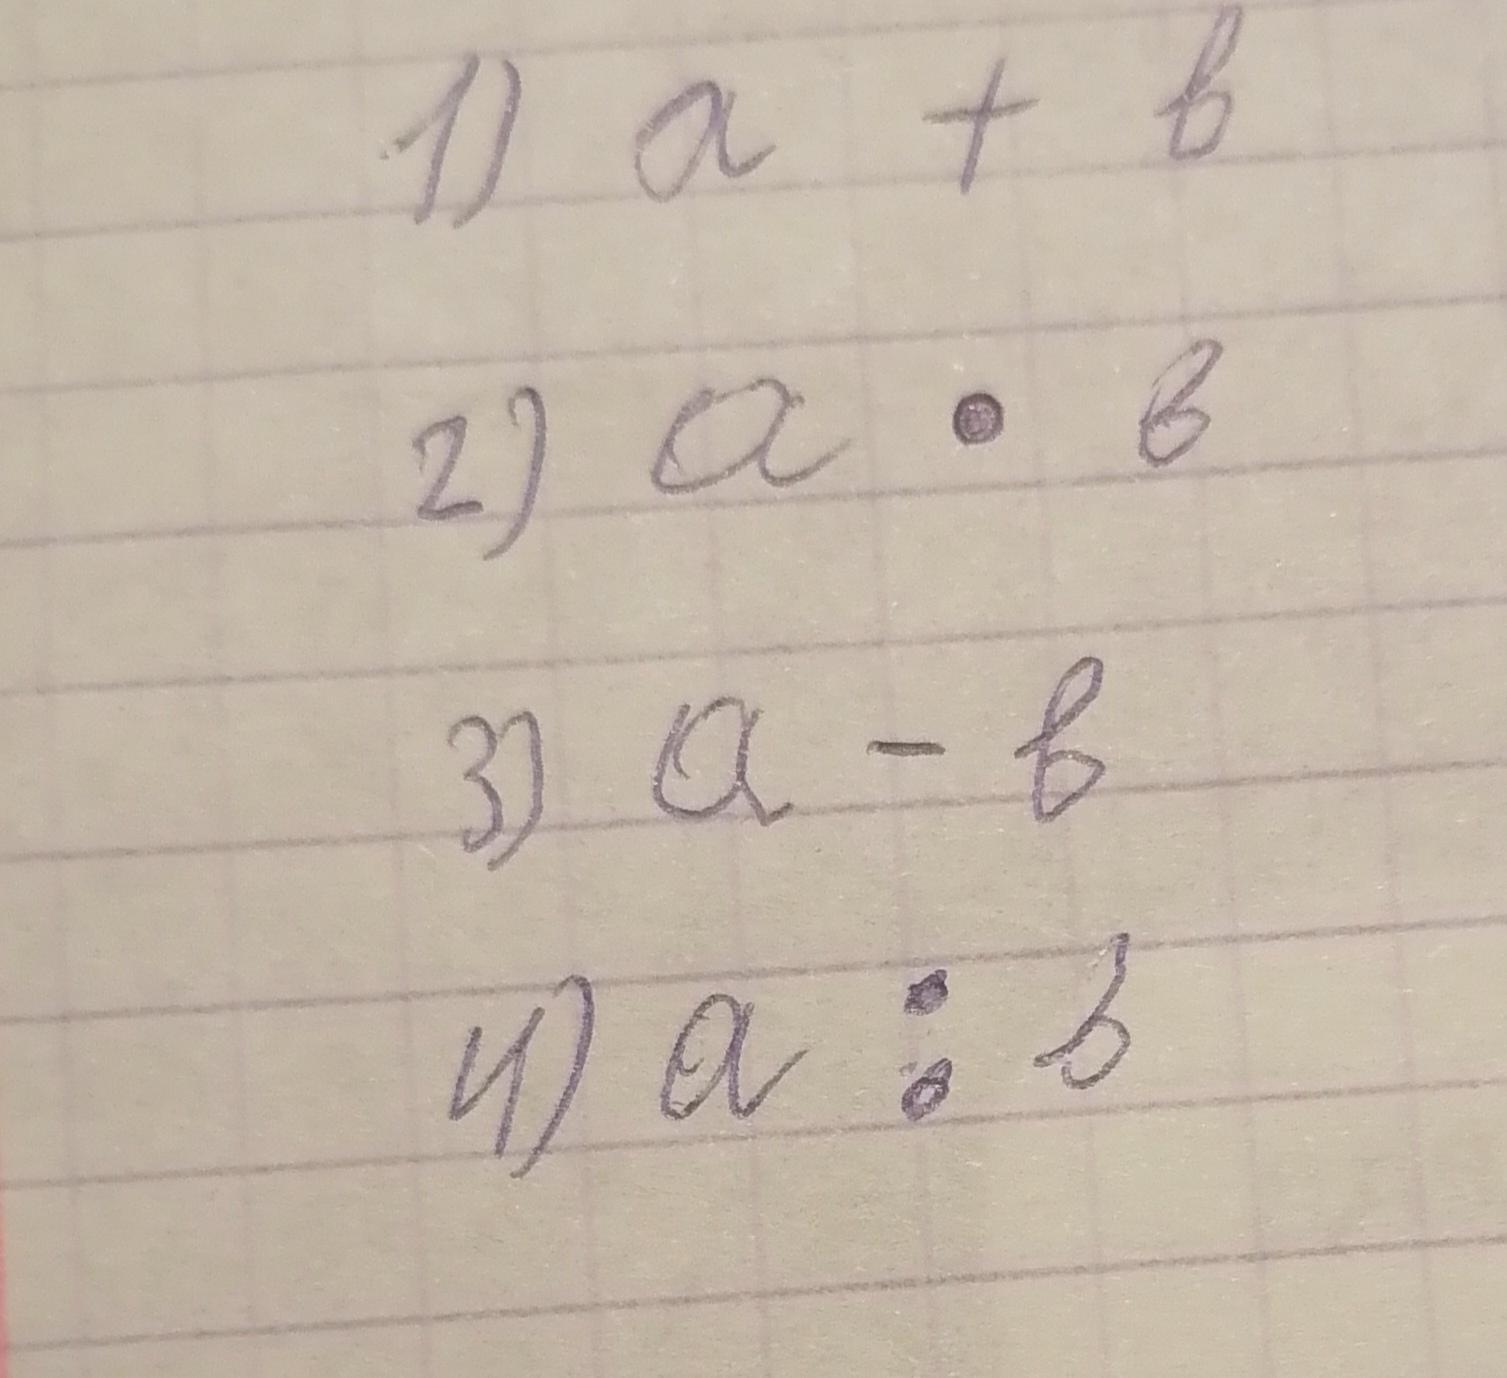 1) a + b
2) a • b
3) a - b
4) a : b